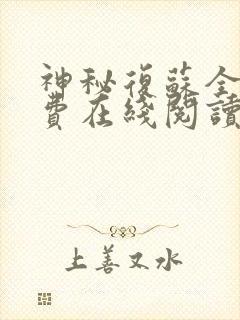 神秘復蘇全
費在綫閱讀
上善又水